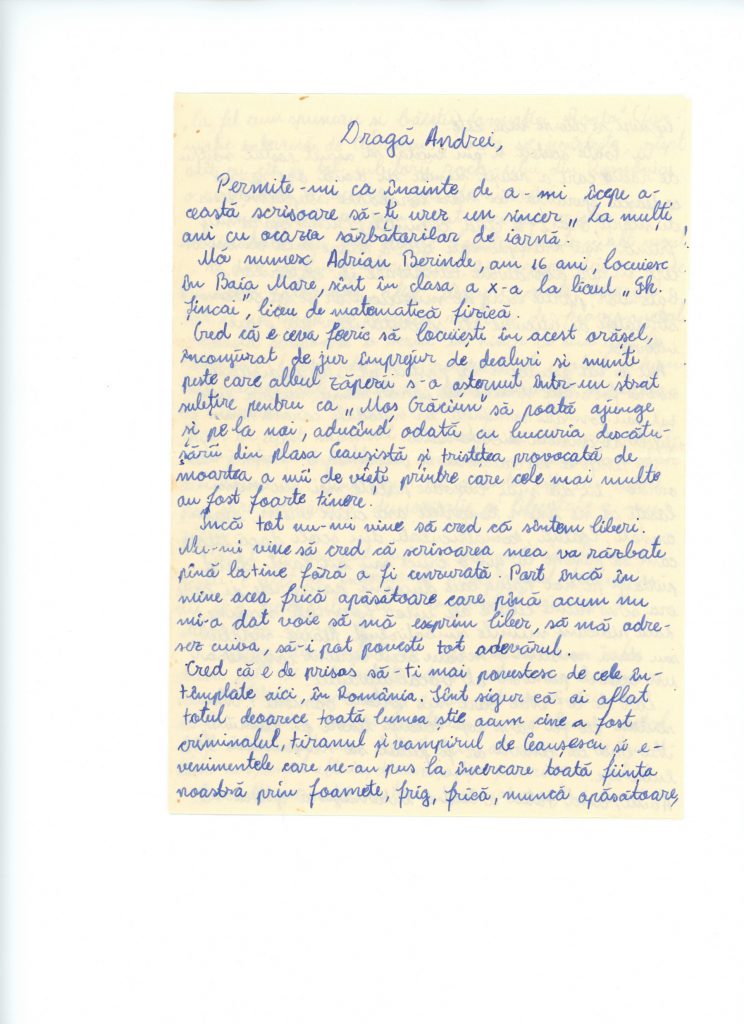 Dragă Andrei,
Permite-mi ca înainte de a-mi îcepe a-
ceastă scrisoare să-ți urez un sincer „La mulți
ani cu ocazia sărbătorilor de iarnă. !
Mă numesc Adrian Berinde, am 16 ani, locuiesc
în Baia Mare, sînt în clasa a X-a la liceul „Gh.
Șincai”, liceu de matematică fizică.
Cred că e ceva feeric să locuiești în acest orășel,
înconjurat de jur împrejur de dealuri si munți
peste care albul zăperii s-a așternut într-un strat
subțire pentru ca „Moș Crăciun” să poată ajunge
și pe la noi, aducînd odată cu bucuria descătu-
șării din plasa Ceaușistă și tristețea provocată de
moartea a mii de vieți printre care cele mai multe
au fost foarte tinere!
Încă tot nu-mi vine să cred că sîntem liberi.
Nu-mi vine să cred că scrisoarea mea va răzbate
pînă la tine fără a fi cenzurată. Port încă în
mine acea frică apăsătoare care pînă acum nu
mi-a dat voie să mă exprim liber, să mă adre-
sez cuiva, să-i pot povesti tot adevărul.
Cred că e de prisos să-ti mai povestesc de cele în-
tîmplate aici, în România. Sînt sigur că ai aflat
totul deoarece toată lumea știe acum cine a fost
criminalul, tiranul și vampirul de Ceaușescu și e-
venimentele care ne-au pus la încercare toată ființa
noastră prin foamete, frig, frică, muncă apăsătoare,